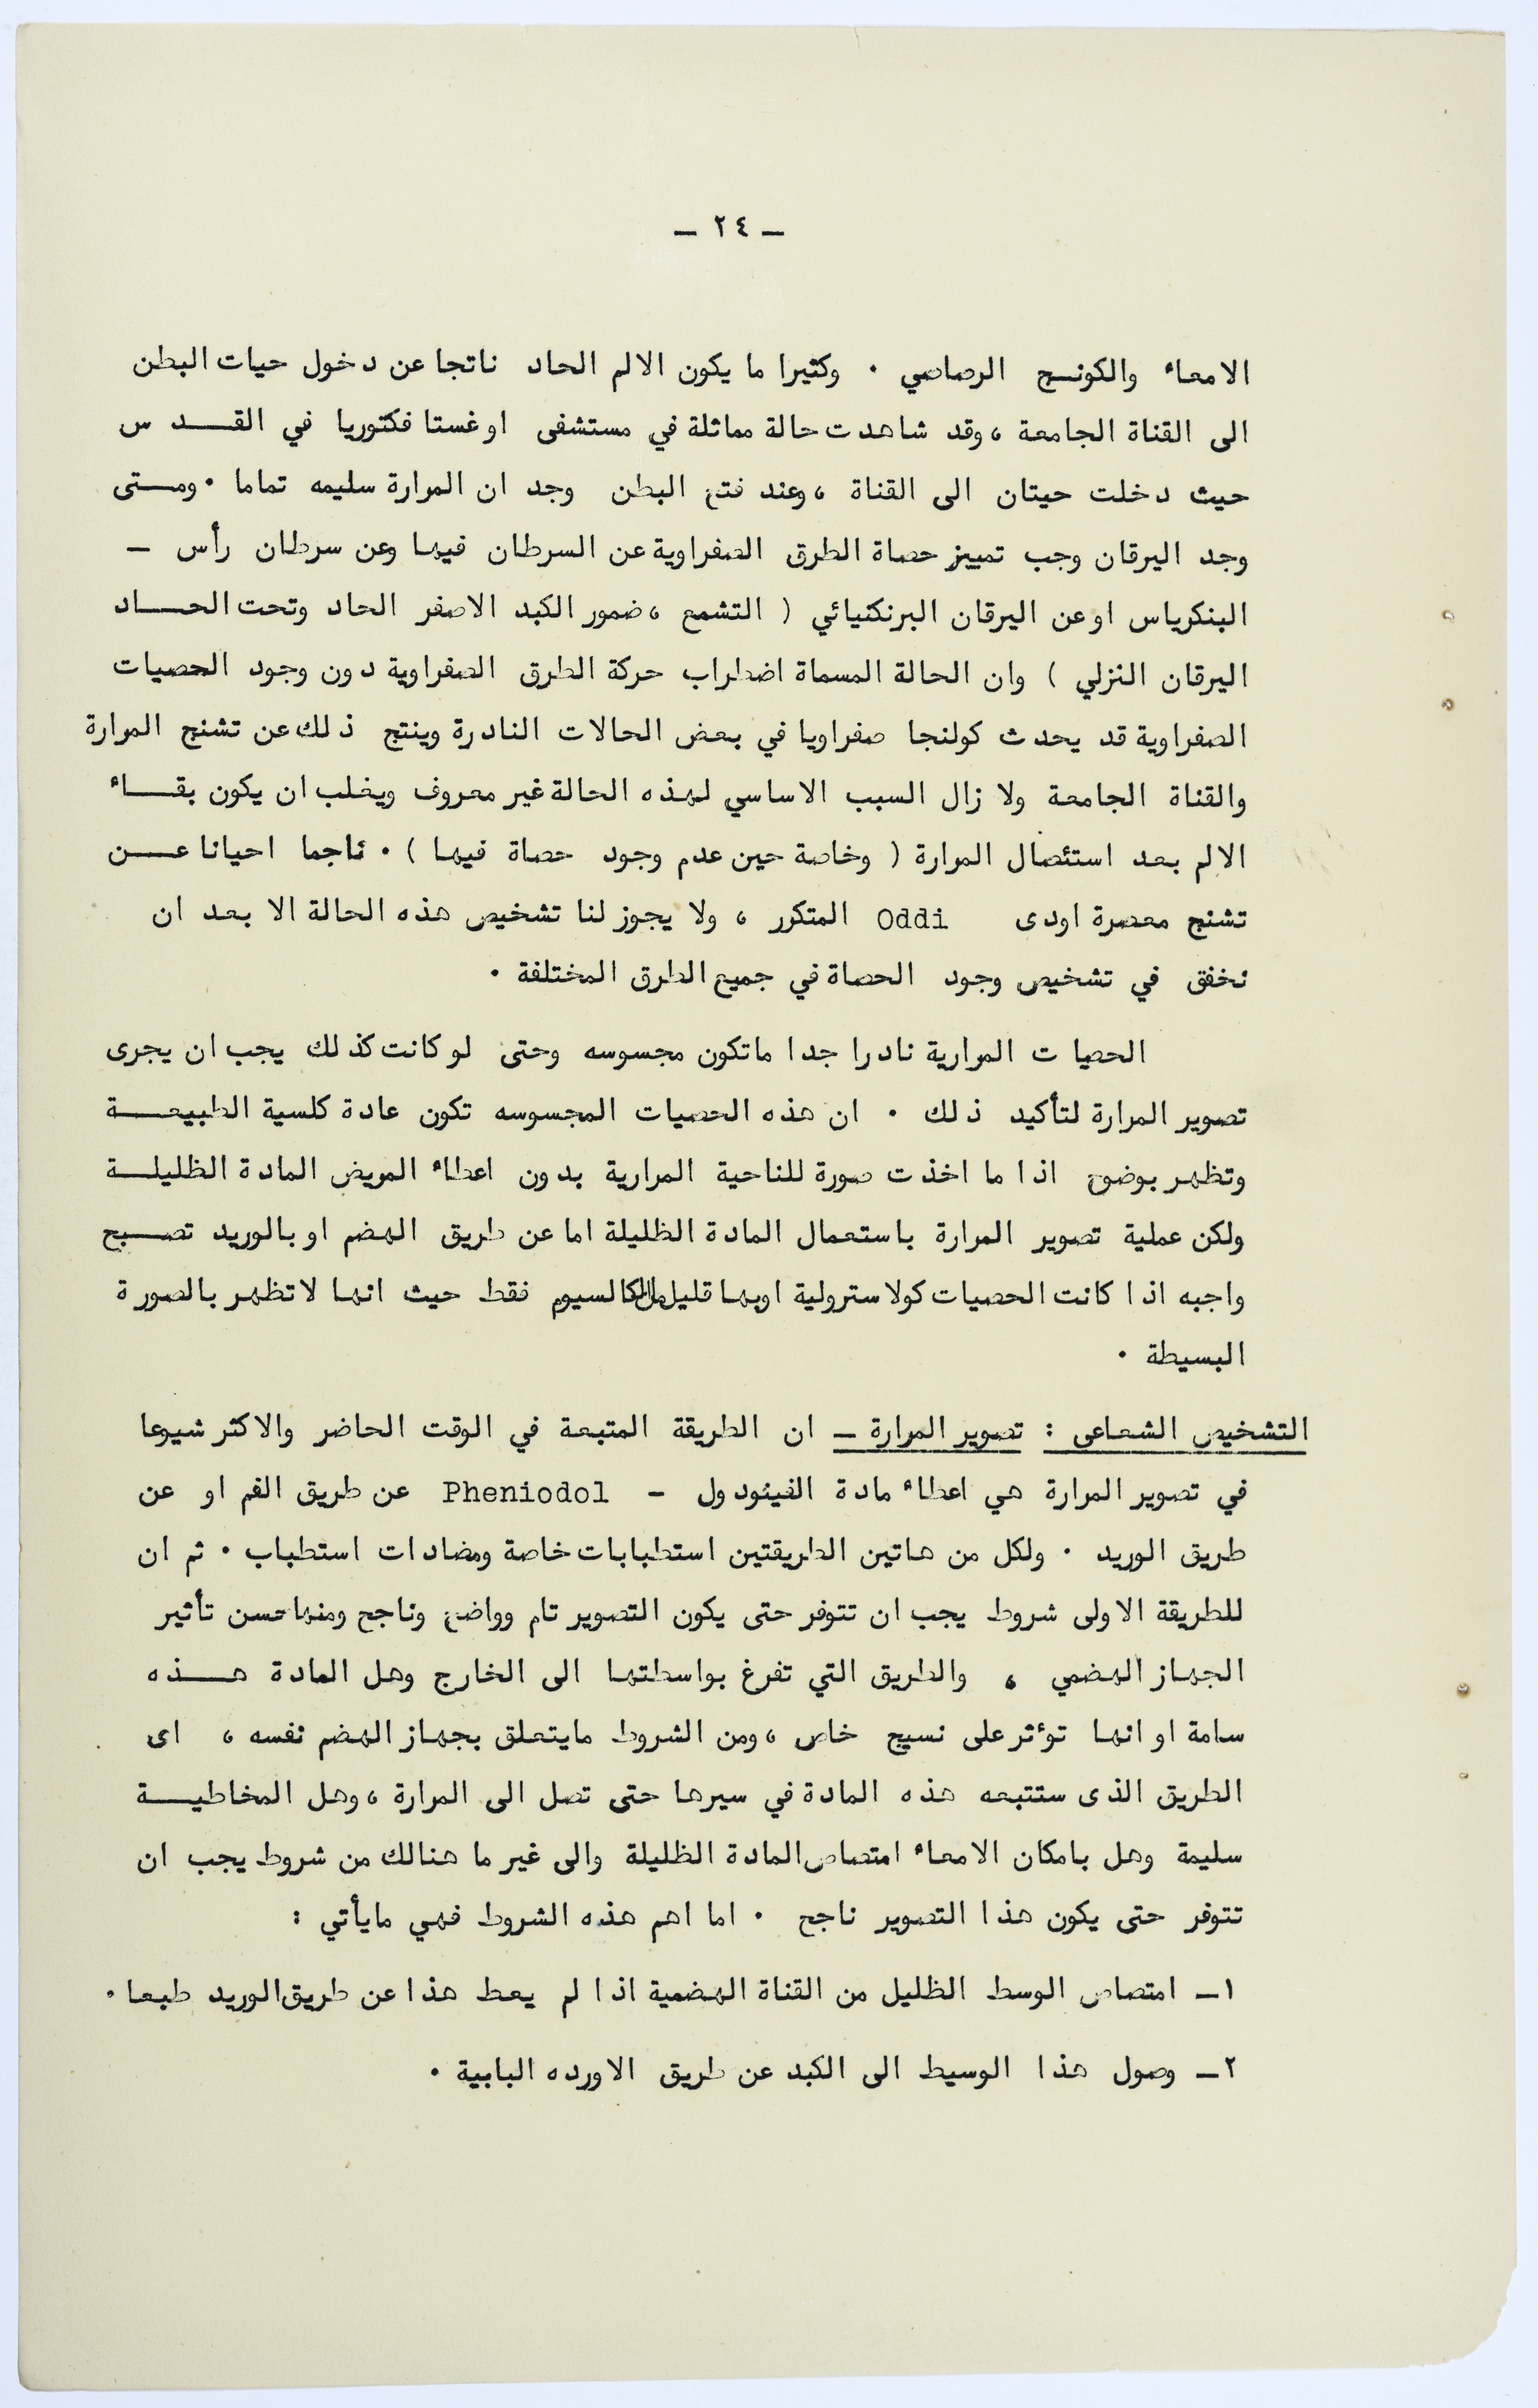 — ٢٤ —
الامعاء والكونسج الرصاصي ٠ وكثيرا ما يكون الالم الحاد ناتجا عن دخول حيات البطن
الى القناة الجامعة ، وقد شاهدت حالة مماثلة في مستشفى اوغستا فكتوريا في القـــدس
حيث دخلت حيتان الى القناة ، وعند فتح البطن وجد ان المرارة سليمه تماما ٠ ومــتى
وجد اليرقان وجب تمييز حصاة الطرق الصفراوية عن السرطان فيها وعن سرطان رأس —
البنكرياس اوعن اليرقان البرنكنيائي ( التشمع ، ضمور الكبد الاصفر الحاد وتحت الحـــاد
اليرقان النزلي ) وان الحالة المسماة اضطراب حركة الطرق الصفراوية دون وجود الحصيات
الصفراوية قد يحدث كولنجا صفراويا في بعض الحالات النادرة وينتج ذلك عن تشنج المرارة
والقناة الجامعة ولا زال السبب الاساسي لهذه الحالة غير معروف ويغلب ان يكون بقـــاء
الالم بعد استئصال المرارة ( وخاصة حين عدم وجود حصاة فيها ) ٠ ناجما احيانا عـــن
تشنج معصرة اودى Oddi المتكرر ، ولا يجوز لنا تشخيص هذه الحالة الا بعد ان
نخفق في تشخيص وجود الحصاة في جميع الطرق المختلفة ٠
الحصيات المرارية نادرا جدا ماتكون مجسوسه وحتى لو كانت كذلك يجب ان يجرى
تصوير المرارة لتأكيد ذلك ٠ ان هذه الحصيات المجسوسه تكون عادة كلسية الطبيعـــة
وتظهر بوضوح اذا ما اخذت صورة للناحية المرارية بدون اعطاء المريض المادة الظليلـــة
ولكن عملية تصوير المرارة باستعمال المادة الظليلة اما عن طريق الهضم او بالوريد تصـــبح
واجبه اذا كانت الحصيات كولاسترولية اوبها قليل من الكالسيوم فقط حيث انها لاتظهر بالصورة
البسيطة ٠
التشخيص الشعاعى : تصوير المرارة — ان الطريقة المتبعة في الوقت الحاضر والاكثر شيوعا
في تصوير المرارة هي اعطاء مادة الفينودول — Pheniodol عن طريق الفم او عن
طريق الوريد ٠ ولكل من هاتين الطريقتين استطبابات خاصة ومضادات استطباب ٠ ثم ان
للطريقة الاولى شروط يجب ان تتوفر حتى يكون التصوير تام وواضح وناجح ومنها حسن تأثير
الجهاز الهضمي ، والطريق التي تفرغ بواسطتها الى الخارج وهل المادة هـــذه
سامة او انها تؤثر على نسيج خاص ، ومن الشروط مايتعلق بجهاز الهضم نفسه ، اى
الطريق الذى ستتبعه هذه المادة في سيرها حتى تصل الى المرارة ، وهل المخاطيـــة
سليمة وهل بامكان الامعاء امتصاص المادة الظليلة والى غير ما هنالك من شروط يجب ان
تتوفر حتى يكون هذا التصوير ناجح ٠ اما اهم هذه الشروط فهي مايأتي :
١ـ امتصاص الوسط الظليل من القناة الهضمية اذا لم يعط هذا عن طريق الوريد طبعا ٠
٢ـ وصول هذا الوسيط الى الكبد عن طريق الاورده البابية ٠